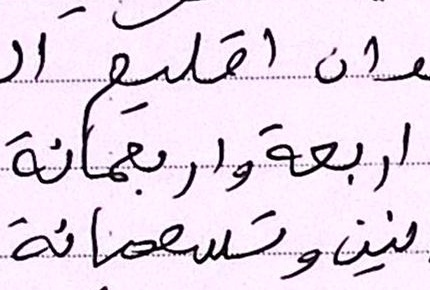 وان اقليم ال
اربعة واربعمائة
نين وتسعمائة